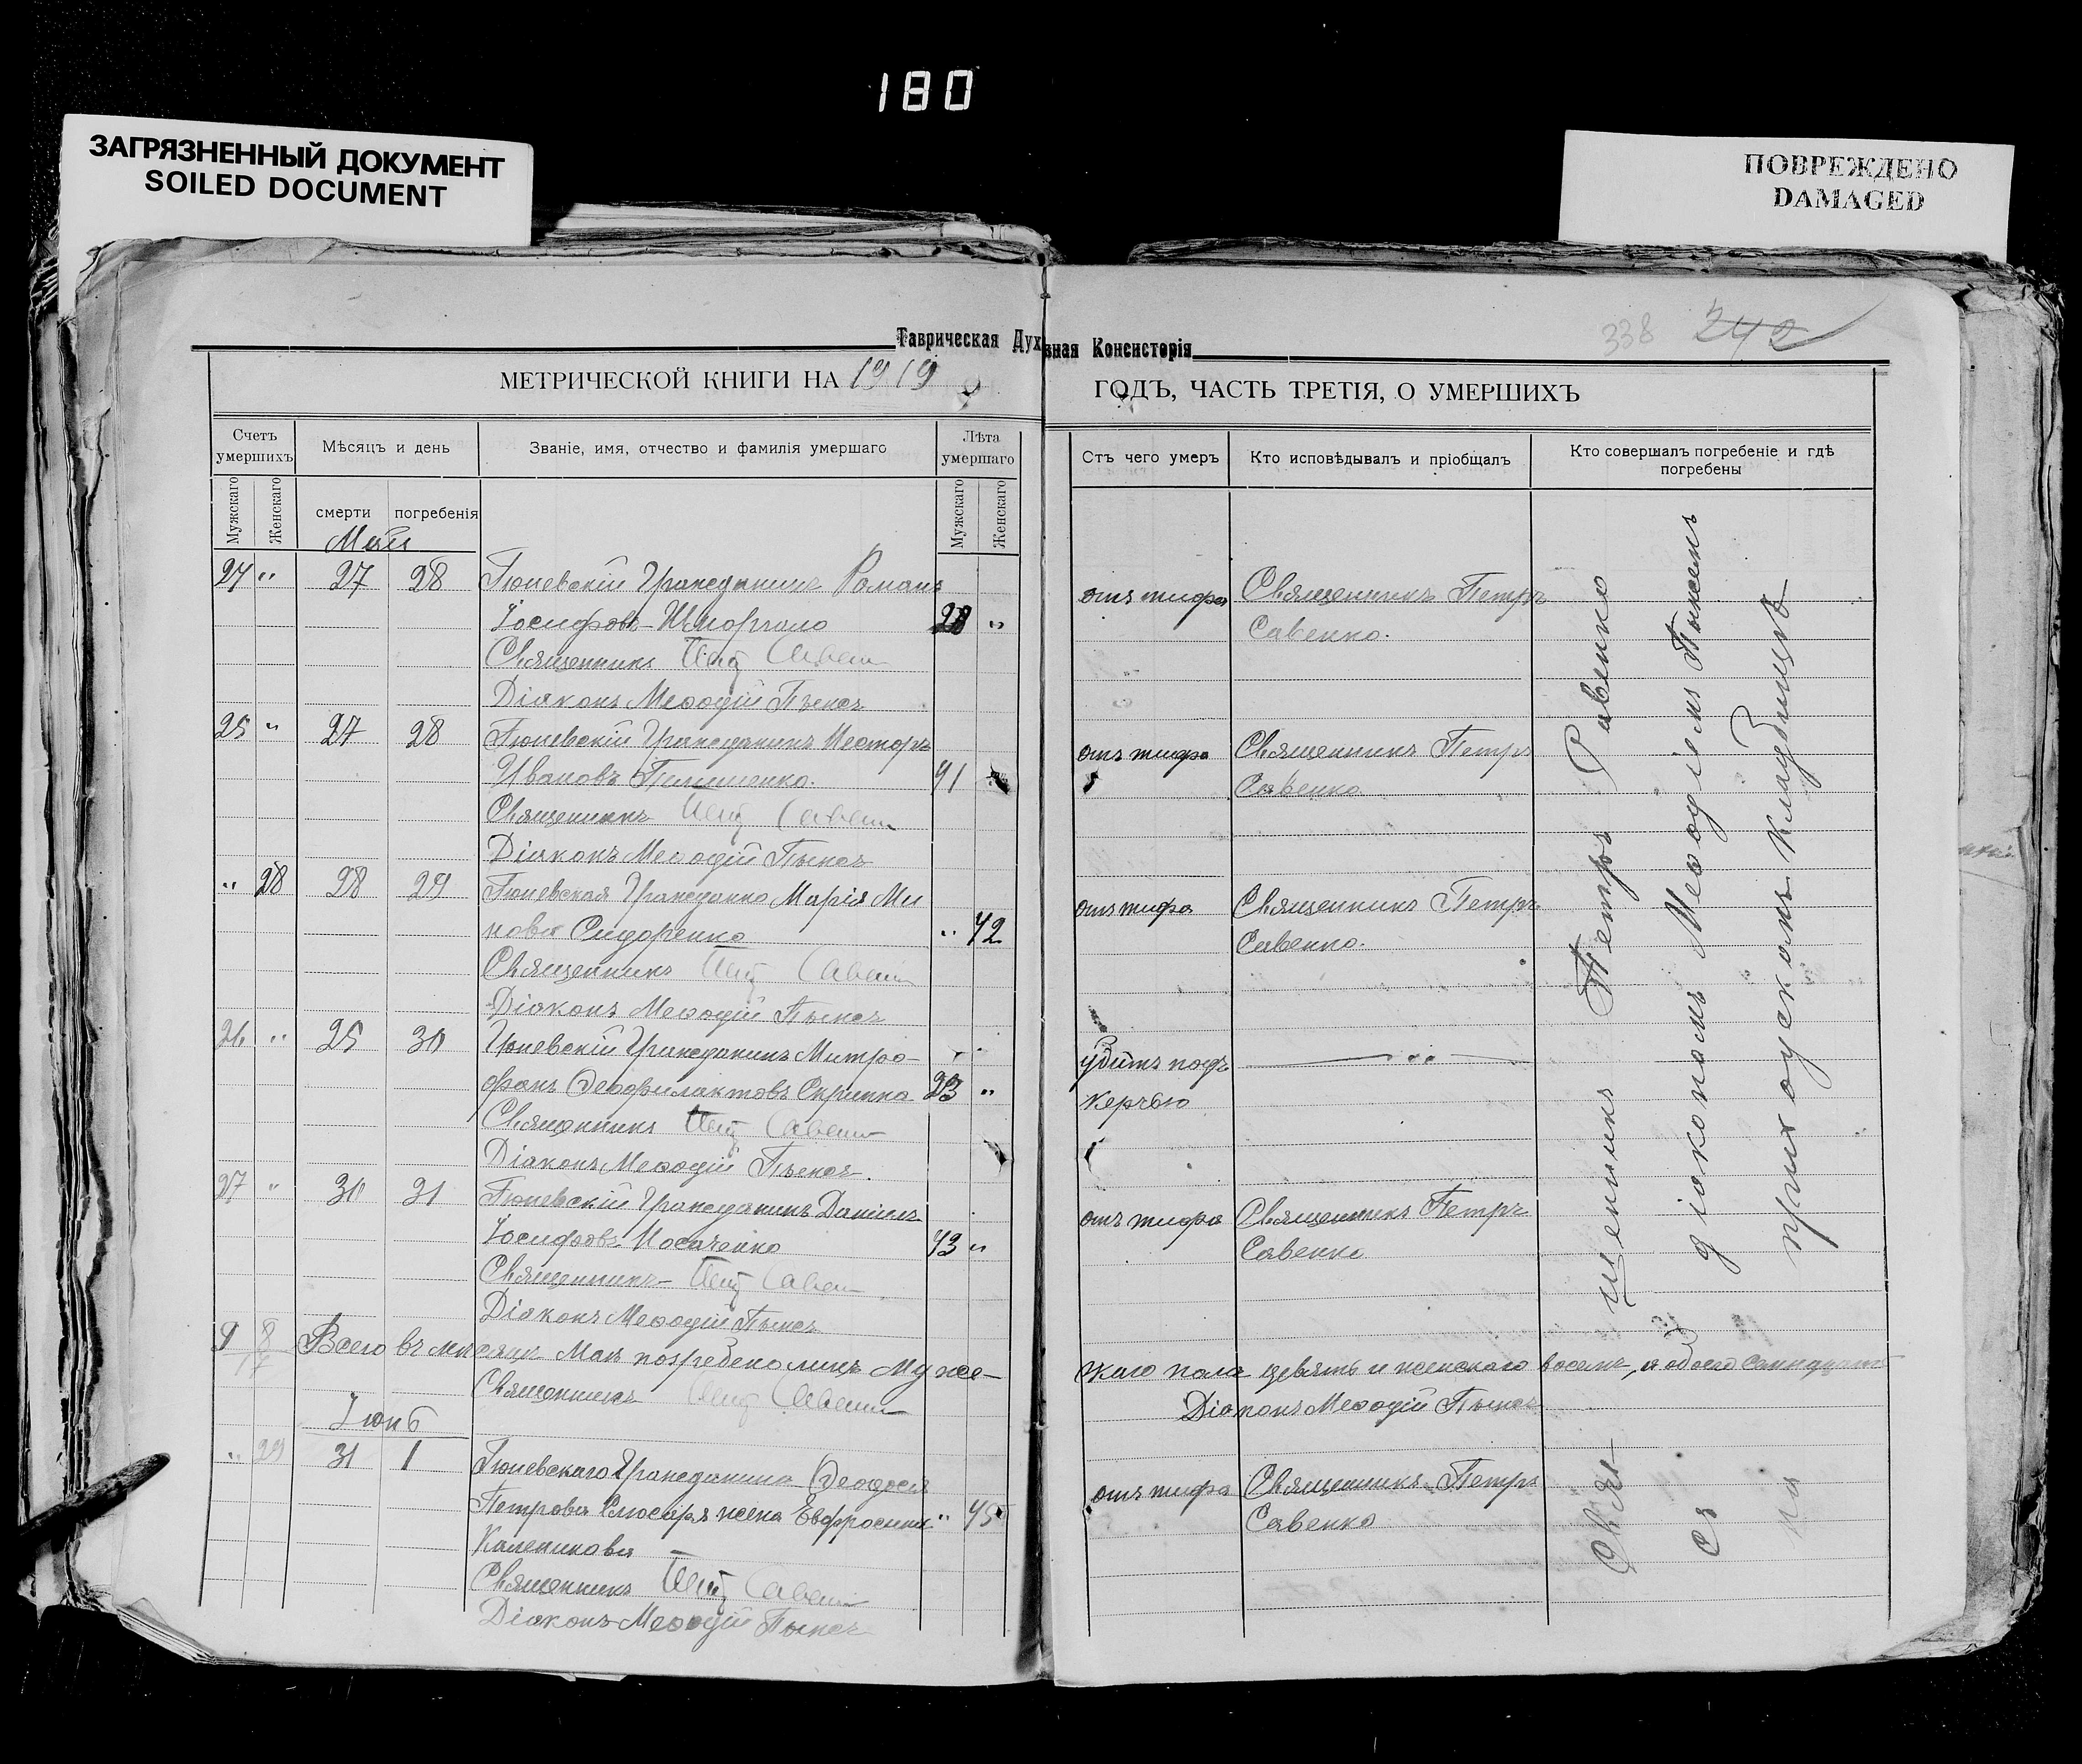 180
ЗАГРЯЗНЕННЫЙ ДОКУМЕНТ
SOILED DOCUMENT
ПОВРЕЖДЕНО
DAMAGED
338 242
Таврическая Духвная Консисторія
МЕТРИЧЕСКОЙ КНИГИ НА 1919 ГОДЪ, ЧАСТЬ ТРЕТІЯ, О УМЕРШИХЪ
Счетъ умершихъ
Мѣсяцъ и день
Званіе, имя, отчество и фамилія умершаго
Лѣта умершаго
Стъ чего умеръ
Кто исповѣдывалъ и пріобщалъ
Кто совершалъ погребеніе и гдѣ погребены
Мужскаго
Женскаго
смерти
погребенія
Мужскаго
Женскаго
Май
24 " 27 28 Гюневскій Гражданинъ Романъ отъ тифа Священникъ Петръ
Іосифовъ 28 " Савенко.
Священникъ Петр Савенко
Діаконъ Меѳодій
25 " 27 28 Гюневскій Гражданинъ Несторъ отъ тифа Священникъ Петръ
Ивановъ 41 Савенко
Священникъ Петр Савенко
Діаконъ Меѳодій
" 28 28 29 Гюневская Гражданка Марія Ми отъ тифа Священникъ Петръ
нова Сидоренко " 42 Савенко.
Священникъ Петр Савенко
Діаконъ Меѳодій
26 " 25 30 Гюневскій Гражданинъ Митро- убитъ подъ
фанъ Ѳеофилактовъ Скрипка 23 " Керчью
Священникъ Петр Савенко
Діаконъ Меѳодій
27 " 30 31 Гюневскій Гражданинъ Даніилъ отъ тифа Священникъ Петръ
Іосифовъ Носаченко 43 " Савенко
Священникъ Петр Савенко
Діаконъ Меѳодій
9 8 Всего въ мѣсяцѣ Маѣ погребено лицъ муже- скаго пола девять и женскаго восемь, а обоего семнадцать
17 Священникъ Петр Савенко Діаконъ Меѳодій
Іюнь
" 29 31 1 Гюневскаго Гражданина Ѳеодосія отъ тифа Священникъ Петръ
Петрова Слюсаря жена Евфросинія " 45 Савенко
Калепикова
Священникъ Петр Савенко
Діаконъ Меѳодій
Священникъ Петръ Савенко
съ діакономъ Меѳодіемъ
на приходскомъ кладбищѣ